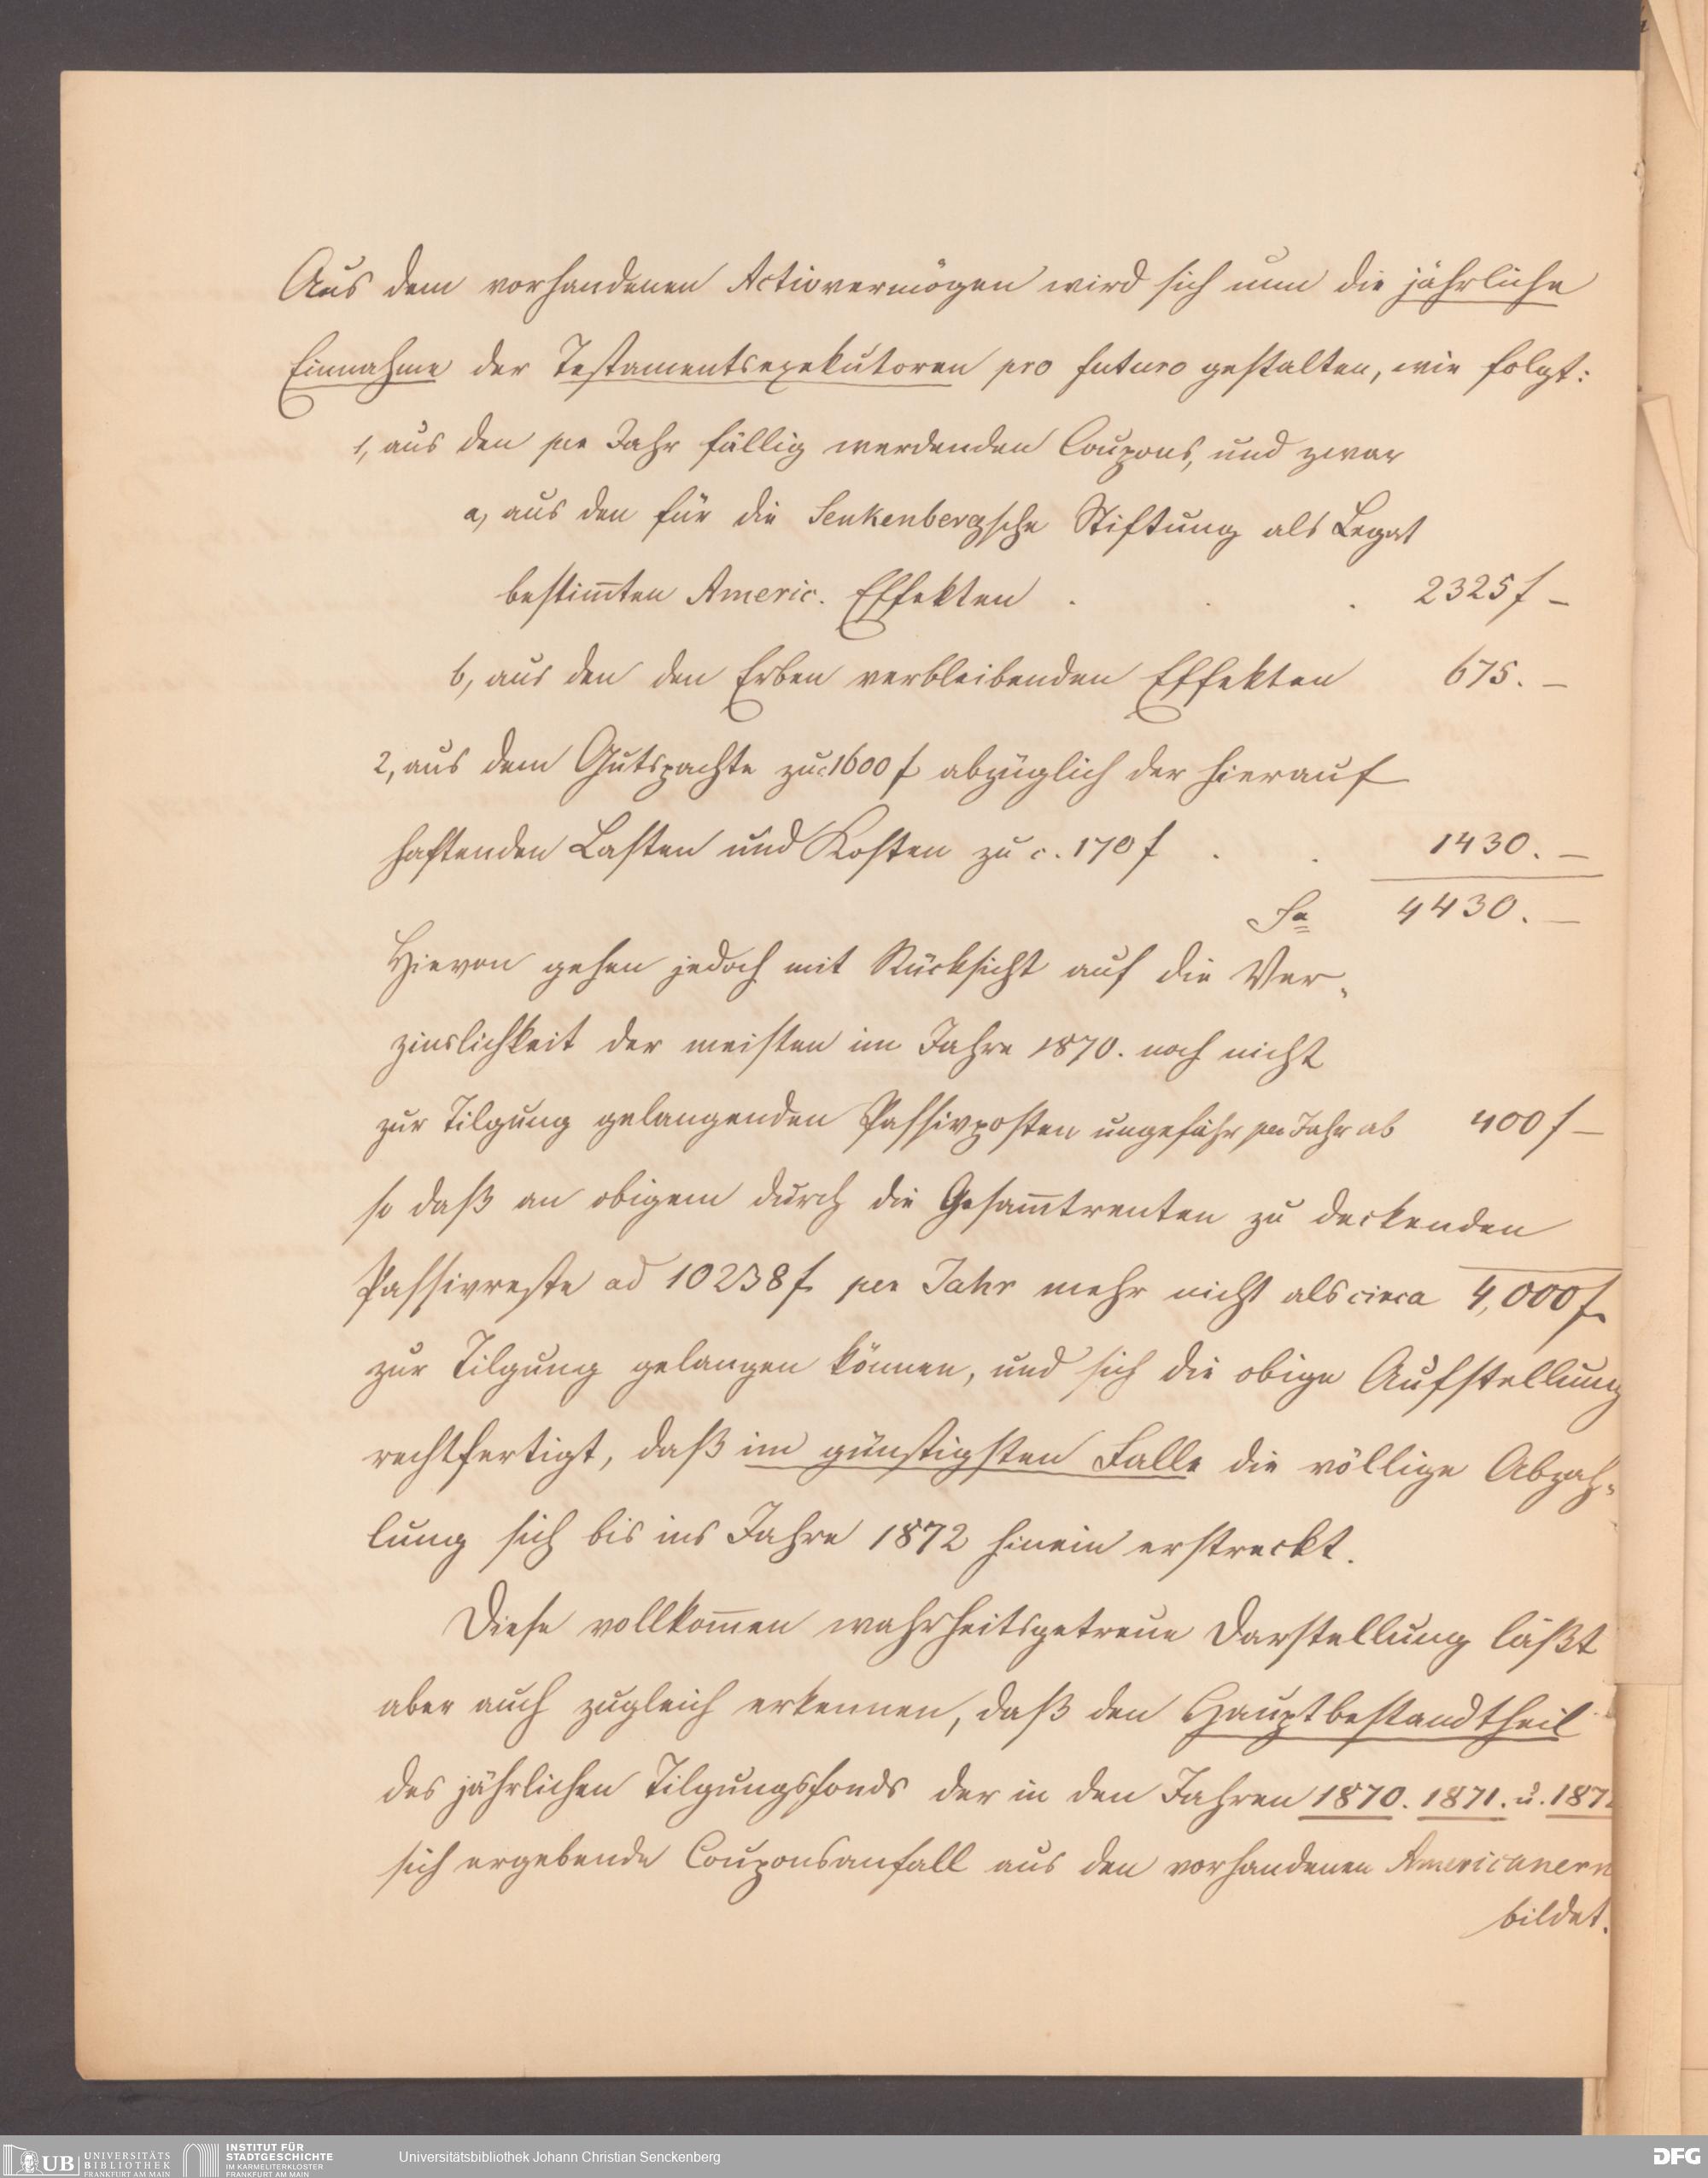 Aus dem vorhandenen Activvermögen wird sich nun die jährliche
Einnahme der Testamentsexekutoren pro futuro gestalten, wie folgt:
1, aus den per Jahr fällig werdenden Coupons, und zwar
a, aus den für die Senkenbergsche Stiftung als Legat
bestim̅ten Americ. Effekten . . . 2325 f –
b, aus den den Erben verbleibenden Effekten 675. –
2, aus dem Gutspachte zu c. 1600 f abzüglich der hierauf
haftenden Lasten und Kosten zu c. 170 f . . 1430. –
Sa 4430. –
Hievon gehen jedoch mit Rücksicht auf die Ver-
zinslichkeit der meisten im Jahre 1870. noch nicht
zur Tilgung gelangenden Passivposten ungefähr per Jahr ab 400 f –
so daß an obigem durch die Gesam̅trenten zu deckenden
Passivreste ad 10238 f. per Jahr mehr nicht als circa 4,000 f.
zur Tilgung gelangen können, und sich die obige Aufstellung
rechtfertigt, daß im günstigsten Falle die völlige Abzah-
lung sich bis ins Jahre 1872 hinein erstreckt.
Diese vollkom̅en wahrheitsgetreue Darstellung läßt
aber auch zugleich erkennen, daß den Hauptbestandtheil
des jährlichen Tilgungsfonds der in den Jahren 1870. 1871. u. 1872
sich ergebende Couponsanfall aus den vorhandenen Americanern
bildet.
UB UNIVERSITÄTS
BIBLIOTHEK
FRANKFURT AM MAIN
INSTITUT FÜR
STADTGESCHICHTE
IM KARMELITERKLOSTER
FRANKFURT AM MAIN
Universitätsbibliothek Johann Christian Senckenberg
DFG